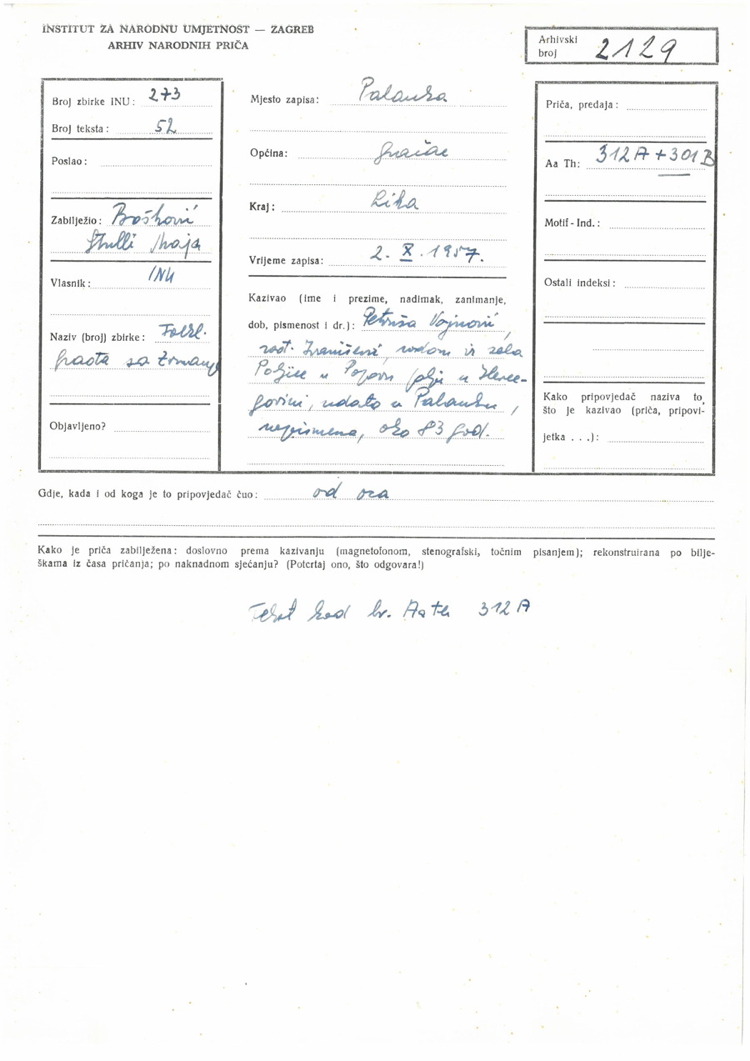 INSTITUT ZA NARODNU UMJETNOST — ZAGREB
ARHIV NARODNIH PRIČA
Arhivski broj 2129
Broj zbirke INU: 273
Broj teksta: 52
Poslao:
Zabilježio: Bošković
Stulli Maja
Vlasnik: INU
Naziv (broj) zbirke: Folkl.
građa sa Zrmanje
Objavljeno?
Mjesto zapisa: Palanka
Općina: Gračac
Kraj: Lika
Vrijeme zapisa: 2. X. 1957.
Kazivao (ime i prezime, nadimak, zanimanje,
dob, pismenost i dr.): Petruša Vojnović,
rođ. rodom iz sela
Poljice u Popovu polju u Herce-
govini, udata u Palanku,
nepismena, oko 83 god.
Priča, predaja:
Aa Th: 312A + 301B
Motif-Ind.:
Ostali indeksi:
Kako pripovjedač naziva to,
što je kazivao (priča, pripovi-
jetka . . .):
Gdje, kada i od koga je to pripovjedač čuo: od oca
Kako je priča zabilježena: doslovno prema kazivanju (magnetofonom, stenografski, točnim pisanjem); rekonstruirana po bilje-
škama iz časa pričanja; po naknadnom sjećanju? (Potcrtaj ono, što odgovara!)
Tekst kod br. Aa Th 312A